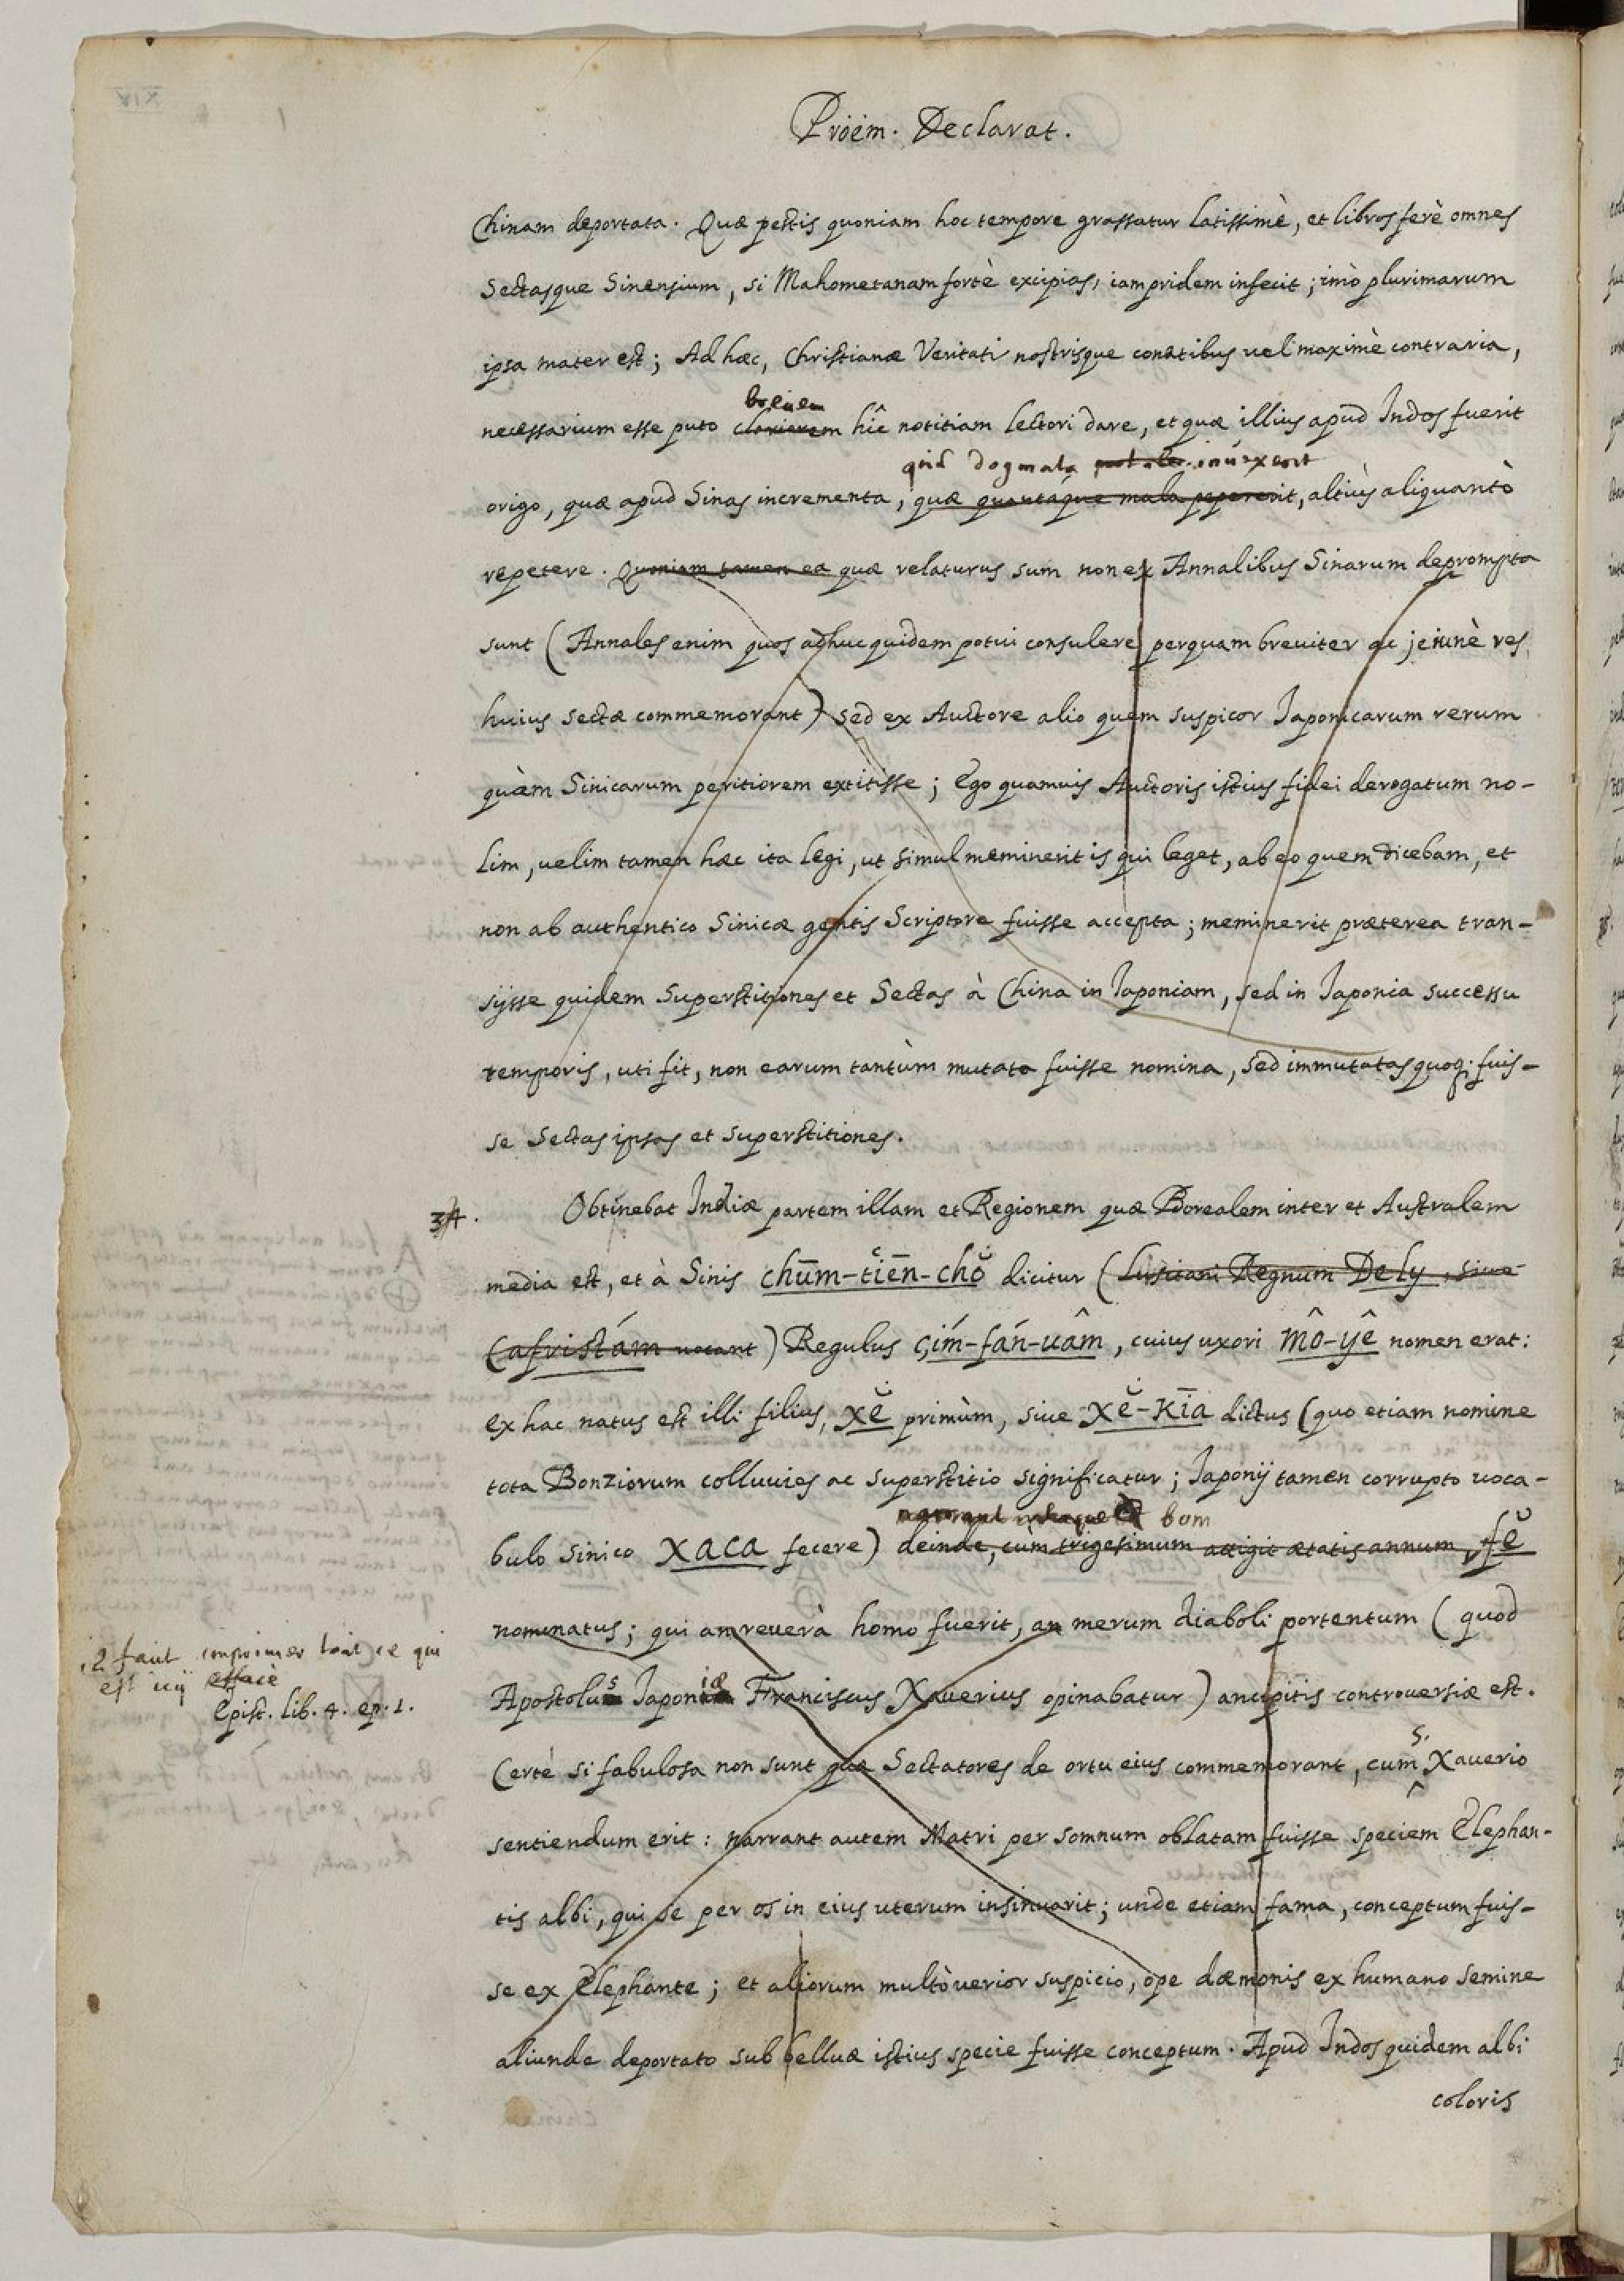 Proëm. Declarat.
Chinam deportata. Quæ pestis quoniam hoc tempore grassatur latissimè, et libros ferè omnes
Sectasque Sinensium, si Mahometanam fortè excipias, iampridem infecit; imò plurimarum
ipsa mater est; Ad hæc, Christianæ Veritati nostrisque conatibus vel maximè contraria,
brevem
necessarium esse puto clariorem hîc notitiam lectori dare, et quæ illius apud Indos fuerit
quid dogmata invexerit
origo, quæ apud Sinas incrementa, quæ quantáque mala pepererit, altiùs aliquantò
repetere. Quoniam tamen ea quæ relaturus sum non ex Annalibus Sinarum deprompta
sunt (Annales enim quos adhuc quidem potui consulere perquam breviter ac jejunè res
huius sectæ commemorant) sed ex Auctore alio quem suspicor Japonicarum rerum
quàm Sinicarum peritiorem extitisse; Ego quamvis Auctoris istius fidei derogatum no-
lim, uelim tamen hæc ita legi, ut simul meminerit is qui leget, ab eo quem dicebam, et
non ab authentico Sinicæ gentis Scriptore fuisse accepta; meminerit præterea tran-
sijsse quidem Superstitiones et Sectas à China in Japoniam, sed in Japonia successu
temporis, uti fit, non earum tantùm mutata fuisse nomina, sed immutatas quoq; fuis-
se Sectas ipsas et superstitiones.
Obtinebat Indiæ partem illam et Regionem quæ Borealem inter et Australem
media est, et à Sinis chūm-tiēn-chŏ dicitur (Lusitani Regnum Dely, siue
Cafristám vocant) Regulus çím-fán-uâm, cuius uxori mô-yê nomen erat:
ex hac natus est illi filius, xĕ primùm, siue xĕ-kīa dictus (quo etiam nomine
tota Bonziorum colluuies ac superstitio significatur; Japonij tamen corrupto uoca-
bulo Sinico XACA fecere) deinde, cùm trigesimum attigit ætatis annum, fĕ
nominatus; qui an reuerà homo fuerit, an merum diaboli portentum (quod
il faut imprimer tout ce qui
est icy effacé
Epist. Lib. 4. ep. 1.
Apostolus Japoniæ Franciscus Xauerius opinabatur) ancipitis controuersiæ est.
Certè si fabulosa non sunt quæ Sectatores de ortu eius commemorant, cum S. Xauerio
sentiendum erit: narrant autem Matri per somnum oblatam fuisse speciem Elephan-
tis albi, qui se per os in eius uterum insinuarit; unde etiam fama, conceptum fuis-
se ex Elephante; et aliorum multò uerior suspicio, ope dæmonis ex humano semine
aliunde deportato sub belluæ istius specie fuisse conceptum. Apud Indos quidem albi
coloris